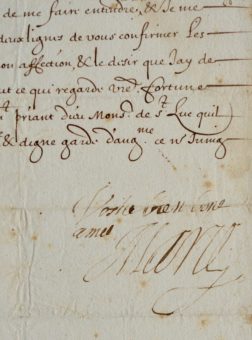 de me faire entendre, & Je me
deux lignes de vous confirmer Les
on affection, & le desir que Jay de
ut ce qui regarde vre Fortune
priant dieu Mons. de St Luc quil
& digne garde d'aug. ce
Vostre bien
amie